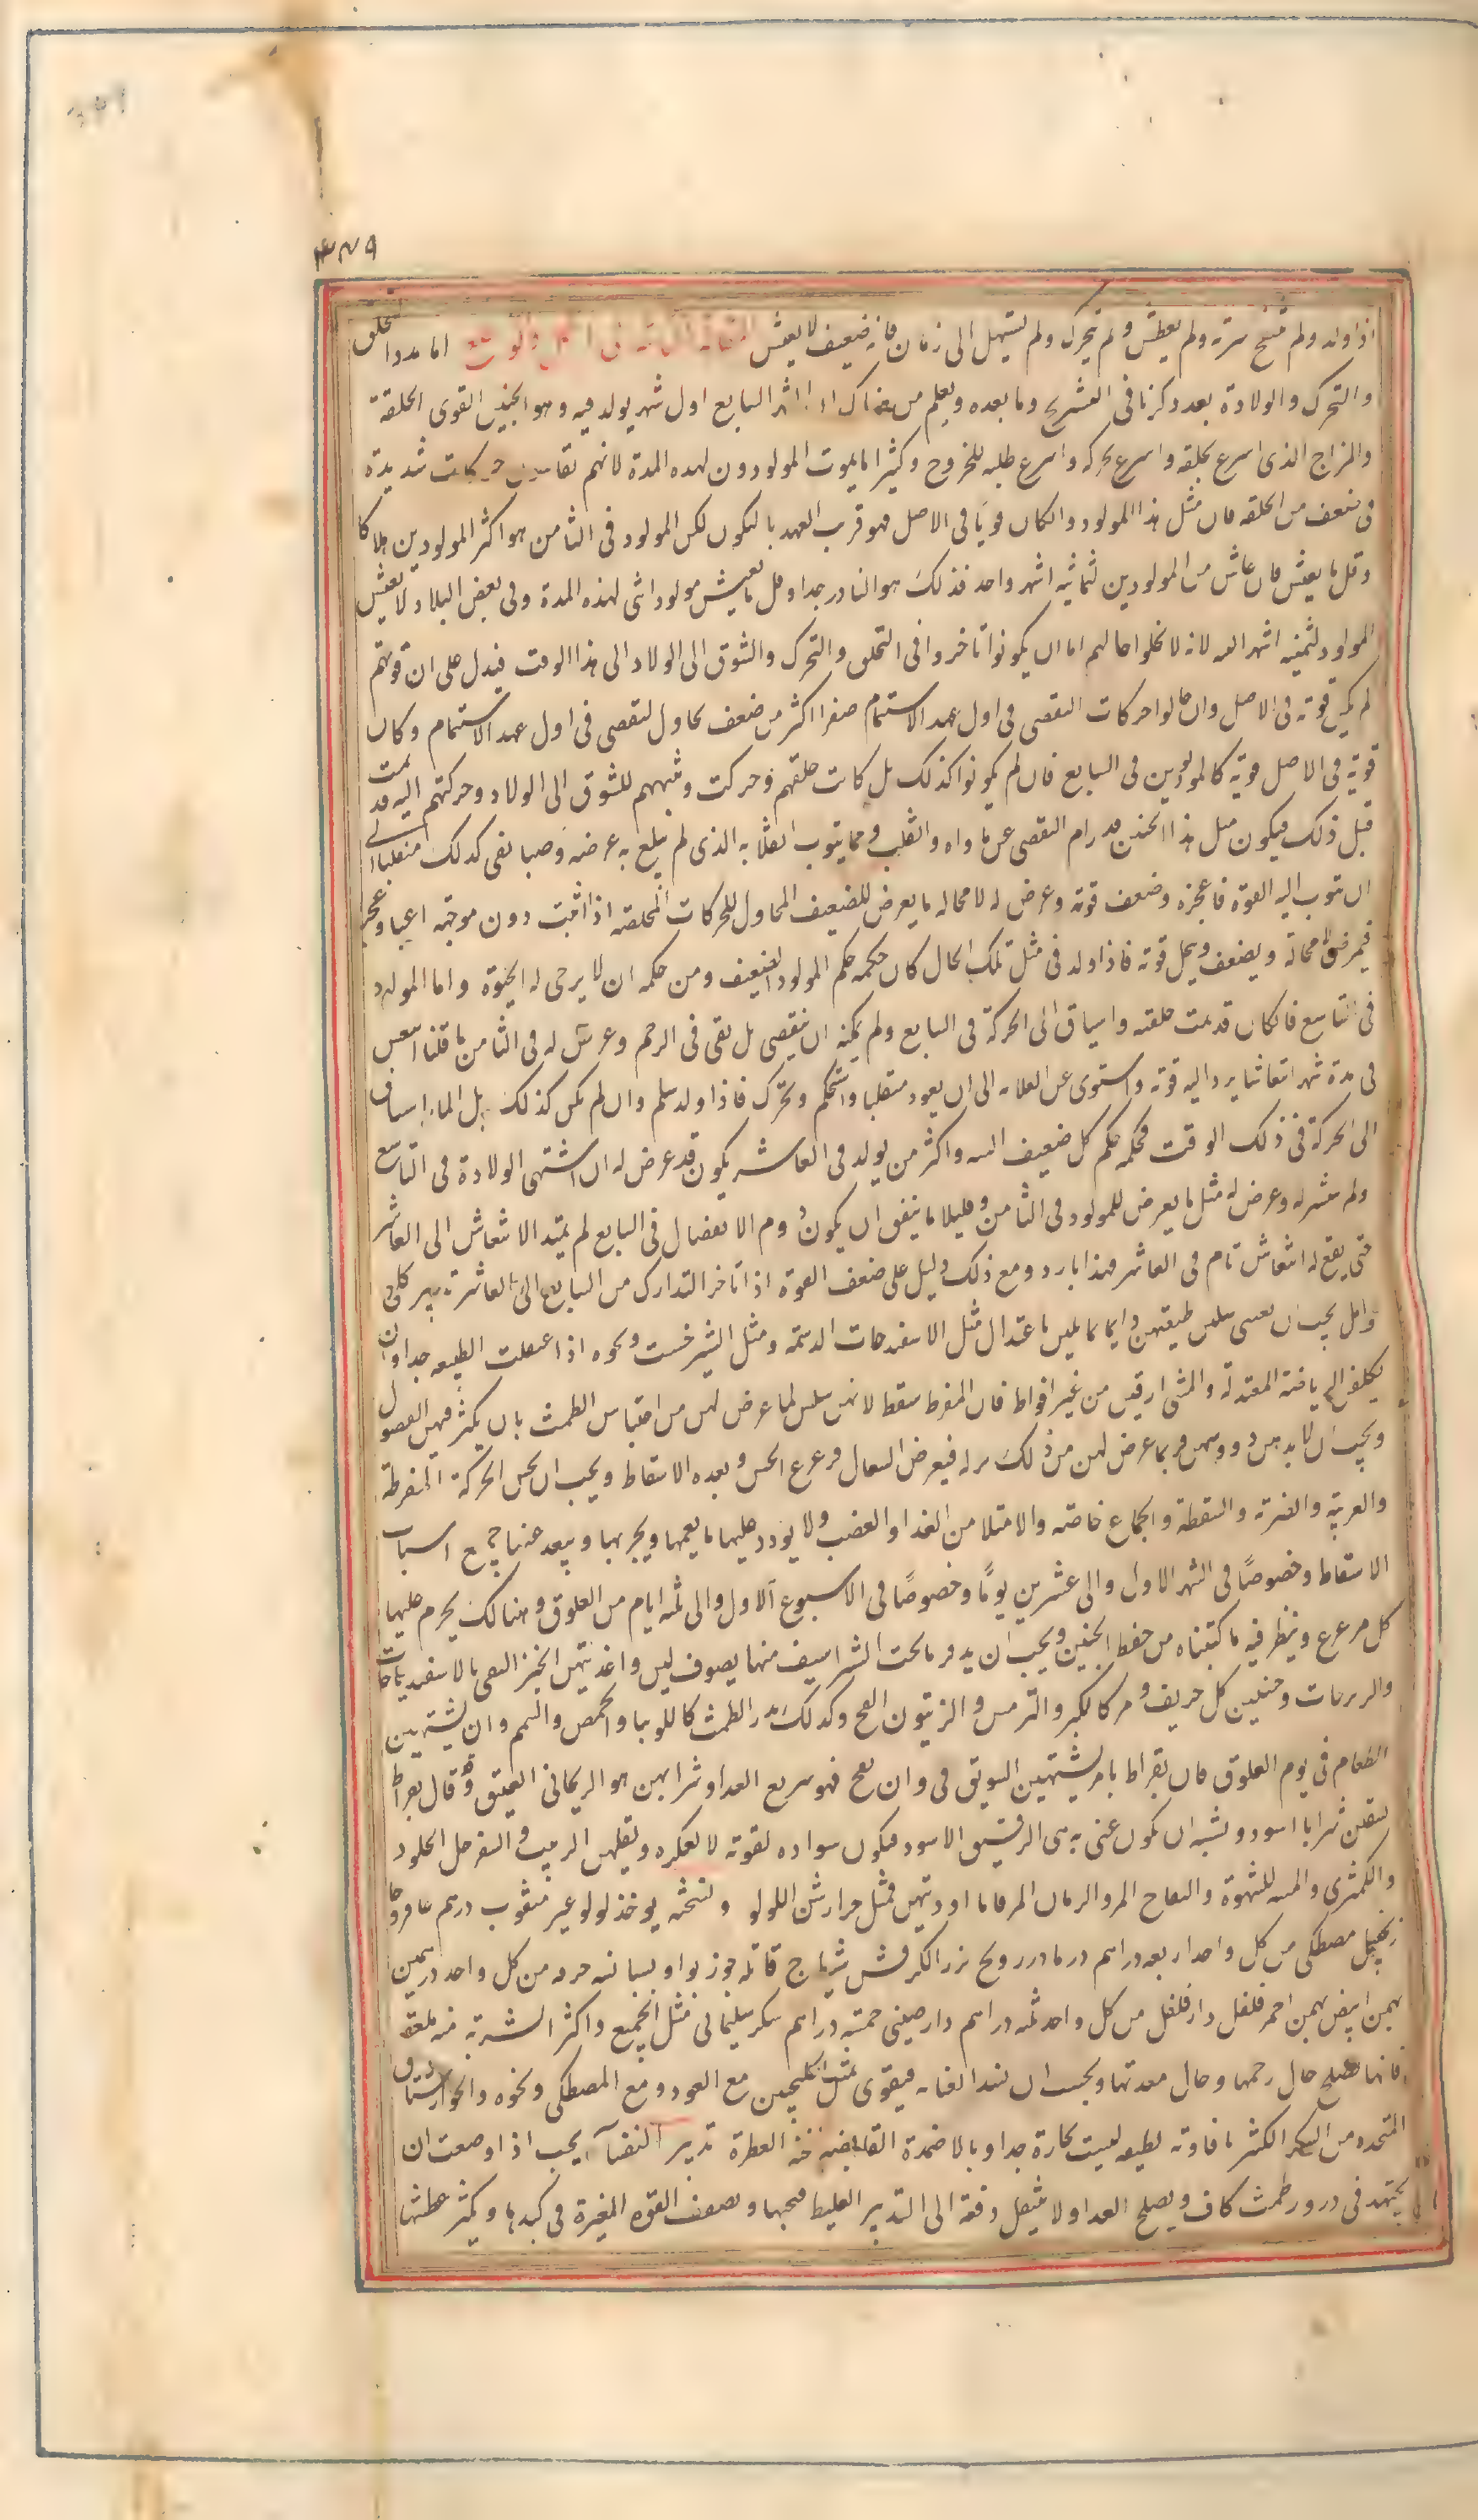 ۴۷۹
اذا ولد ولم تنتفخ سرته ولم يعطس ولم يتحرك ولم يستهل الى زمان فانه ضعيف لا يعيش المقالة الثانية فى الحمل والوضع اما مدد التخلق
والتحرك والولادة بعد ذكرنا فى التشريح وما بعده ويعلم من هناك ان الشهر السابع اول شهر يولد فيه وهو الجنين القوى الخلقة
والمزاج الذى اسرع تخلقه واسرع تحركه واسرع طلبه للخروج وكثيرا ما يموت المولودون لهذه المدة لانهم يقاسون حركات شديدة
فى ضعف من الخلقه فان مثل هذا المولود والكان قويا فى الاصل فهو قريب العهد بالتكون لكن المولود فى الثامن هو اكثر المولودين هلاكا
وقل ما يعيش فان عاش من المولودين لثمانية اشهر واحد فذلك هو النادر جدا وقل ما يعيش مولود انثى لهذه المدة وفى بعض البلاد لا يعيش
المولود لثمنية اشهر البتة لانه لا يخلوا حالهم اما ان يكونوا تاخروا فى التخلق والتحرك والشوق الى الولاد الى هذا الوقت فيدل على ان قوتهم
لم تكن قوية فى الاصل وان حاولوا حركات التقصى فى اول عهد الاستتمام صغرا اكثر من ضعف محاول التقصى فى اول عهد الاستتمام وكان
قوته فى الاصل قوية كالمولودين فى السابع فان لم يكونوا كذلك بل كانت خلقهم وحركت وشبههم للشوق الى الولاد وحركتهم اليه قد تمت
قبل ذلك فيكون مثل هذا الجنين قد رام التقصى عن ماواه وانقلب ومما ينوب انقلابه الذى لم يبلغ به غرضه وصبا بقى كذلك منقلبا الى
ان تثوب اليه القوة فاعجزه وضعف قوته وعرض له لا محاله ما يعرض للضعيف المحاول للحركات المخلصه اذا اثبت دون موجبه اعيا وعجزا
فيمرض لا محالة ويضعف ويحل قوته فاذا ولد فى مثل تلك الحال كان حكمه حكم المولود الضعيف ومن حكمه ان لا يرجى له الحيوة واما المولود
فى التاسع فالكان قد تمت خلقته واسياق الى الحركة فى السابع ولم يمكنه ان يتقصى بل بقى فى الرحم وعرض له فى الثامن ما قلنا انتعش
فى مدة شهر انتعاشا يرد اليه قوته واستوى عن انقلابه الى ان يعود منقلبا واستحكم وتحرك فاذا ولد سلم وان لم يكن كذلك بل انما اسياق
الى الحركة فى ذلك الوقت فحكمه حكم كل ضعيف البنيه واكثر من يولد فى العاشر يكون قد عرض له ان اشتهى الولادة فى التاسع
ولم يتيسر له وعرض له مثل ما يعرض للمولود فى الثامن وقليلا ما يتفق ان يكون روم الانفصال فى السابع لم يمتد الانتعاش الى العاشر
حتى يقع له انتعاش تام فى العاشر فهذا نادر ومع ذلك دليل على ضعف القوة اذا تاخر التدارك من السابع الى العاشر تدبير كلى
وامل يجب ان يعنى بتليين طبيعتهن دايما بما يلين باعتدال مثل الاسفيدجات الدسمة ومثل الشيرخشت ونحوه اذا اعتقلت الطبيعه جدا وان
يكلفن الرياضة المعتدلة والمشى الرفيق من غير افراط فان المفرط مسقط لانهن يبتلين لما عرض لهن من احتباس الطمث بان يكثر فيهن الفضول
ويجب ان لا يدهن رووسهن فربما عرض لهن من ذلك نزله فيعرض السعال فيزعزع الجنين ويعده الاسقاط ويجب ان يجتنبن الحركة المفرطة
والوثبة والضربة والسقطة والجماع خاصة والامتلا من الغدا والغضب ولا يورد عليها ما يغمها ويحزنها ويبعد عنها جميع اسباب
الاسقاط وخصوصًا فى الشهر الاول والى عشرين يومًا وخصوصًا فى الاسبوع الاول والى ثلثه ايام من العلوق وهنالك يحرم عليها
كل مزعزع وينظر فيه ما كتبناه من حفظ الجنين ويجب ان يدثر ما تحت الشراسيف منها بصوف لين واغذيتهن الخبز النقى بالاسفيدباجات
والزيرباجات ويجتنبن كل حريف ومر كالكبر والترمس والزيتون الفج وكذلك مدر الطمث كاللوبيا والحمص والسمسم وان يشتهين
الطعام فى يوم العلوق فان بقراط يامر يشتهين السويق فى وان نفخ فهو سريع الغدا وشرابهن هو الريحانى العتيق وقال بقراط
يسقين شرابا اسود ويشبه ان يكون عنى به هى الرقيق الاسود فيكون سواده لقوته لا لعكره ونقلهن الزبيب والسفرجل الحلو
والكمثرى والمنبه للشهوة والتفاح المز والرمان المز فاما ادويتهن فمثل جوارشن اللولو ونسخته يوخذ لولو غير مثقوب درهم عاقرقرحا
زنجبيل مصطكى من كل واحد اربعه دراهم زرنباد درونج بزر الكرفس شيطرج قاقله جوزبوا بسباسه قرفه من كل واحد درهمين
بهمن ابيض بهمن احمر فلفل دارفلفل من كل واحد ثلثه دراهم دارصينى خمسه دراهم سكر سليمانى مثل الجميع واكثر الشربة منه ملعقه
فانها تصلح حال رحمها وحال معدتها ويجب ان تشتد العناية فيقوى بمثل الجلنجبين مع العود ومع المصطكى ونحوه والجوارشنات
المتخده من السكر الكثير بافاويه لطيفه ليست بحارة جدا وبالاضمدة القابضه منه العطرة تدبير النفسآ يجب اذا وضعت ان
يجتهد فى درور طمث كاف ويصلح الغدا ولا ينتقل دفعة الى التدبير الغليظ فيحمها ويضعف القوة المغيرة فى كبدها ويكثر عطشها